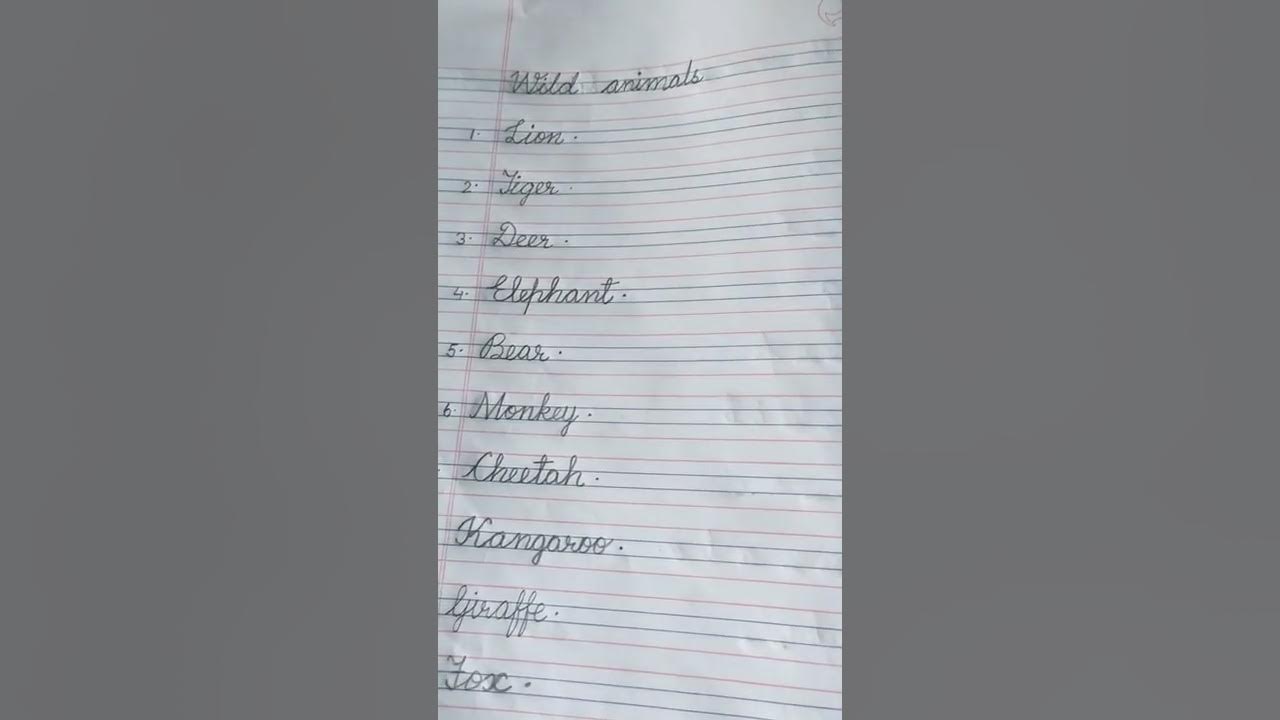 Wild animals
1. Lion.
2. Tiger.
3. Deer.
4. Elephant.
5. Bear.
6. Monkey.
Cheetah.
Kangaroo.
Giraffe.
Fox.